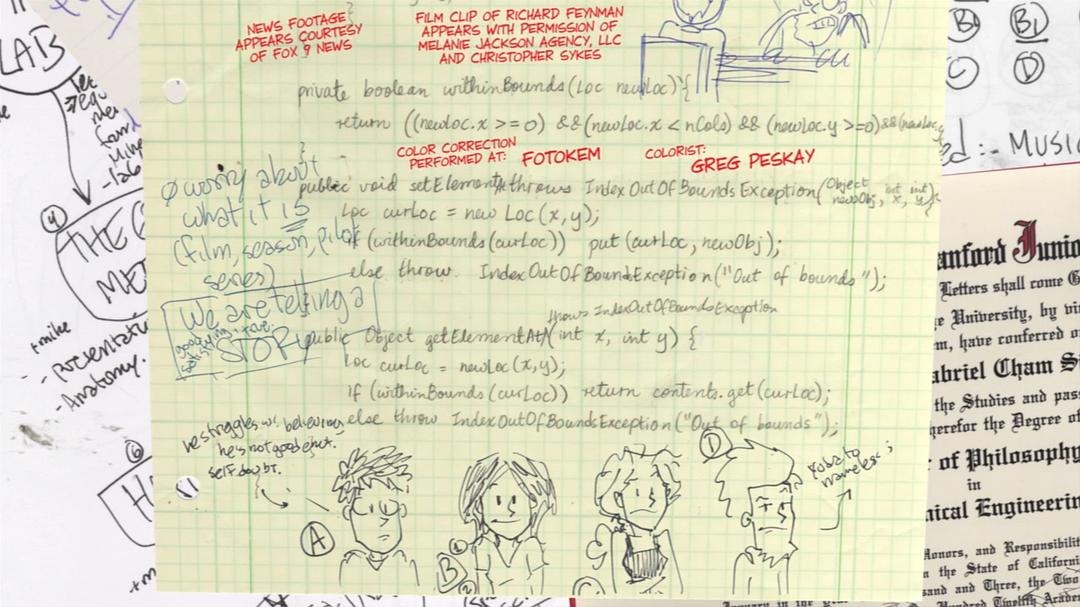 NEWS FOOTAGE
APPEARS COURTESY
OF FOX 9 NEWS
FILM CLIP OF RICHARD FEYNMAN
APPEARS WITH PERMISSION OF
MELANIE JACKSON AGENCY, LLC
AND CHRISTOPHER SYKES
private boolean withinBounds(Loc newLoc){
return ((newLoc.x >= 0) && (newLoc.x < nCols) && (newLoc.y >=0) && (newLoc.y
}
COLOR CORRECTION
PERFORMED AT: FOTOKEM
COLORIST:
GREG PESKAY
public void setElement throws IndexOutOfBoundsException(Object newObj, int x, int y){
Loc curLoc = new Loc(x,y);
if (withinBounds(curLoc)) put (curLoc, newObj);
else throw. IndexOutOfBoundException("Out of bounds");
throws IndexOutOfBoundsException
public Object getElementAt(int x, int y) {
Loc curLoc = newLoc(x,y);
if (withinBounds(curLoc)) return contents.get(curLoc);
else throw IndexOutOfBoundsException("Out of bounds");
Ø worry about
what it is
(film, season, pilot
series)
We are telling a
good
STORY
he struggles w. believing
he's not good
self doubt.
A
B
1
2
D
LAB
4
THE
ME
+mike
- Presentat
- Anatomy.
6
H
+m
B1
B1
C
D
ed :- MUSIC
anford Junio
Letters shall come G
e University, by vi
m, have conferred o
abriel Cham S
the Studies and pas
herefor the Degree of
r of Philosophy
in
nical Engineerin
Honors, and Responsibilit
n the State of California
sand and Three, the Two
Hundred Twelfth Acade
January in the year